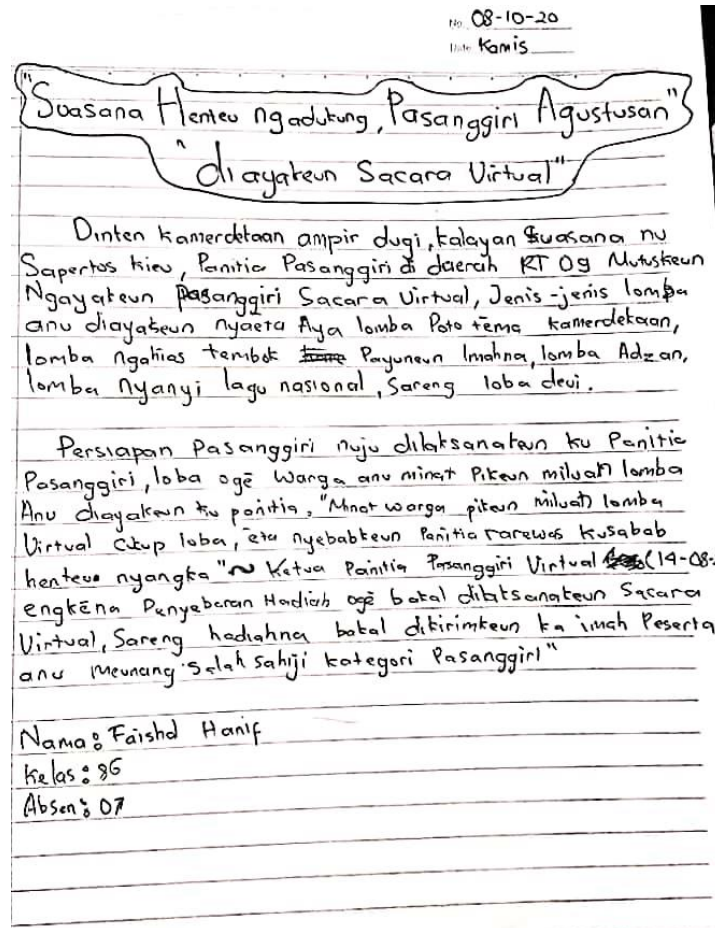 No. 08-10-20
Date Kamis
"Suasana Henteu ngadukung, Pasanggiri Agustusan"
"diayakeun Sacara Virtual"
Dinten kamerdekaan ampir dugi, kalayan Suasana nu
Sapertos kieu, Panitia Pasanggiri di daerah RT 09 Mutuskeun
Ngayakeun Pasanggiri Sacara Virtual, Jenis-jenis lomba
anu diayakeun nyaeta Aya lomba Poto tēma kamerdekaan,
lomba ngahias tembok Payuneun Imahna, lomba Adzan,
lomba nyanyi lagu nasional, Sareng loba deui.
Persiapan Pasanggiri nuju dilaksanakeun ku Panitia
Pasanggiri, loba ogē warga anu minat Pikeun miluah lomba
Anu diayakeun ku panitia, "Minat warga pikeun miluah lomba
Virtual cukup loba, ēta nyebabkeun Panitia rarewas kusabab
henteu nyangka" ~ Ketua Panitia Pasanggiri Virtual (14-08-
engkēna Penyebaran Hadiah ogē bakal dilaksanakeun Sacara
Virtual, Sareng hadiahna bakal dikirimkeun ka imah Peserta
anu meunang salah sahiji kategori Pasanggiri"
Nama : Faishal Hanif
Kelas : 8G
Absen : 07